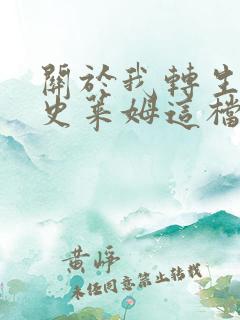 關於我轉生
史萊姆這檔
黄崢
未经同意禁止转载